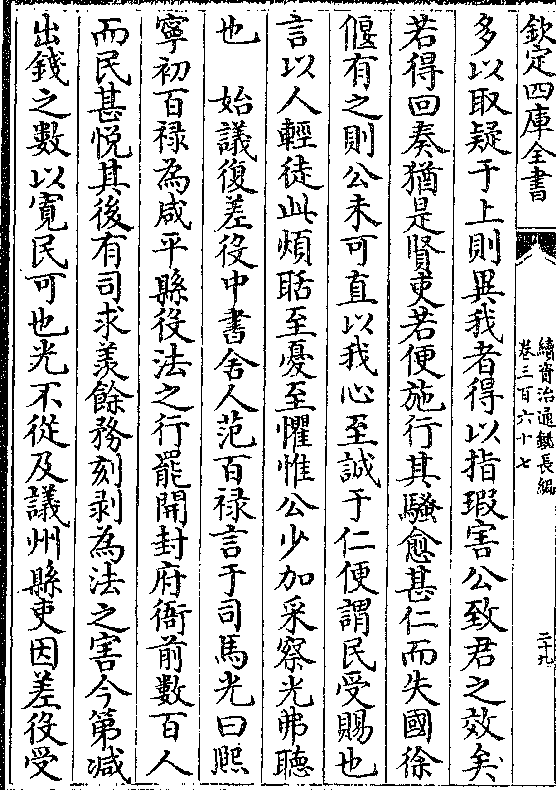 欽定四庫全書
續資治通鑑長編
卷三百六十七
二十九
多以取疑于上則異我者得以指瑕害公致君之效矣
若得回奏猶是賢吏若便施行其騷愈甚仁而失國徐
偃有之則公未可直以我心至誠于仁便謂民受賜也
言以人輕徒此煩聒至憂至懼惟公少加采察光弗聽
也　始議復差役中書舍人范百祿言于司馬光曰熙
寧初百祿為咸平縣役法之行罷開封府衙前數百人
而民甚悅其後有司求羨餘務刻剥為法之害今第減
出錢之數以寛民可也光不從及議州縣吏因差役受